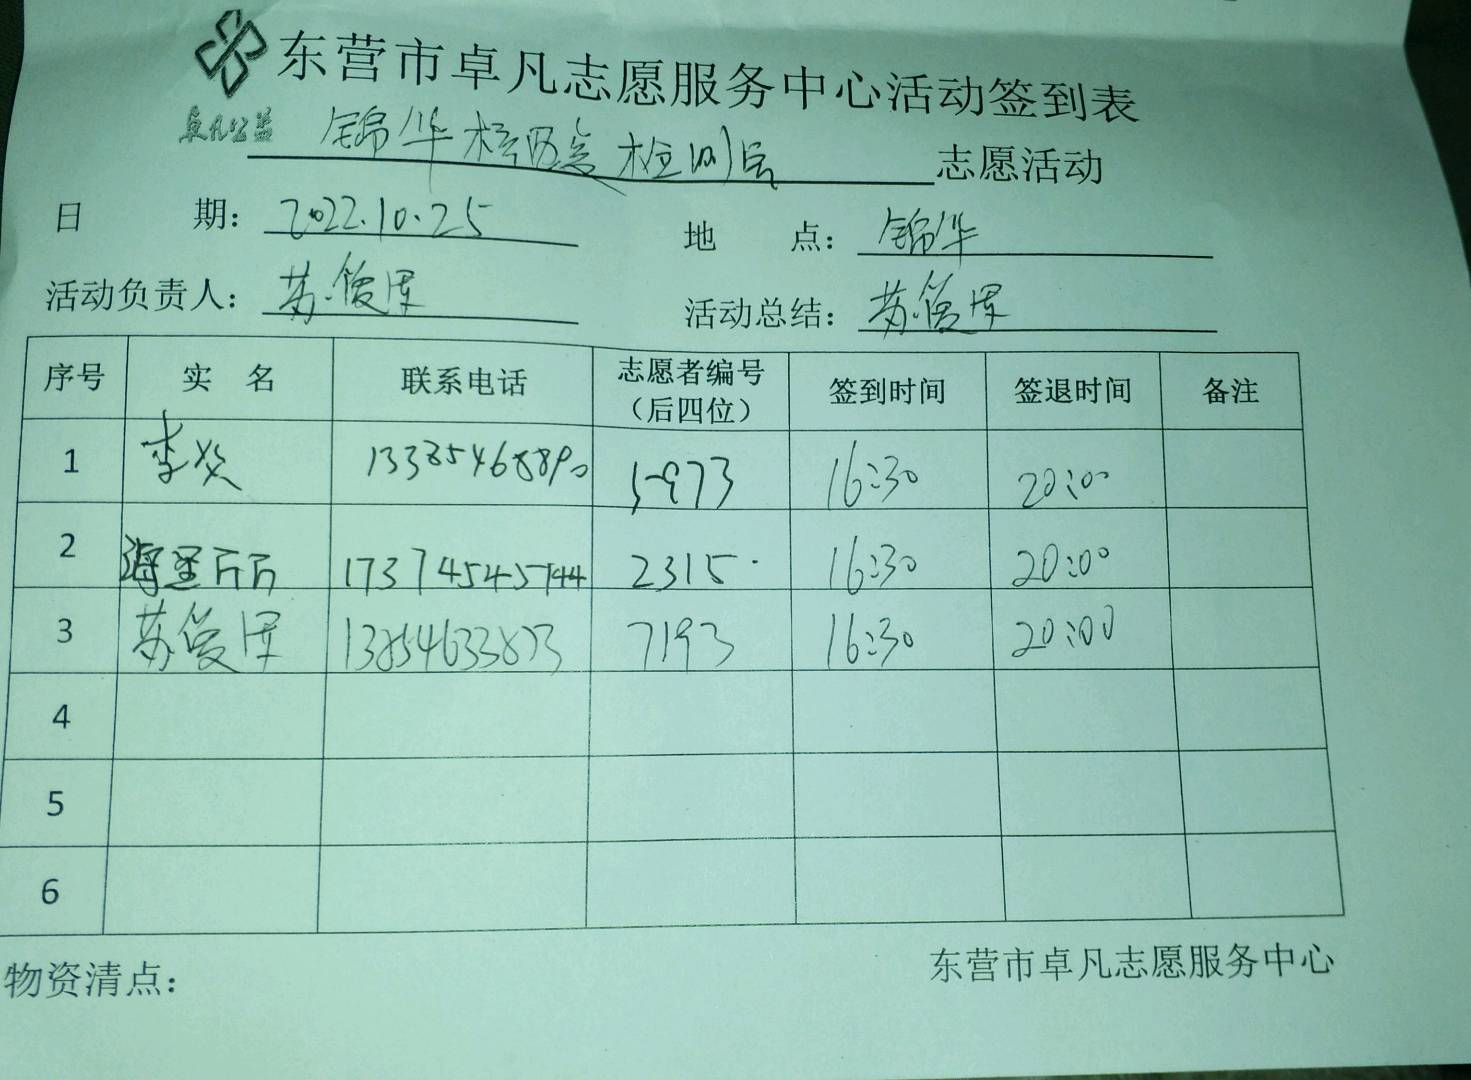 东营市卓凡志愿服务中心活动签到表
卓凡公益
锦华核酸检测点 志愿活动
日 期: 2022.10.25 地 点: 锦华
活动负责人: 苏俊 活动总结: 苏俊
序号 实 名 联系电话 志愿者编号（后四位） 签到时间 签退时间 备注
1 李 13385468890 5973 16:30 20:00
2 17374545744 2315 16:30 20:00
3 苏俊 13854633873 7193 16:30 20:00
4
5
6
物资清点:
东营市卓凡志愿服务中心